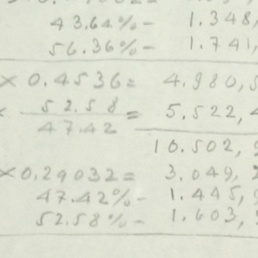 43.64%- 1.348,
56.36%- 1.741,
×0.4536= 4.980,5
× 52.58 = 5.522,4
47.42
10.502,9
×0.29032= 3.049,2
47.42%- 1.445,9
52.58%- 1.603,